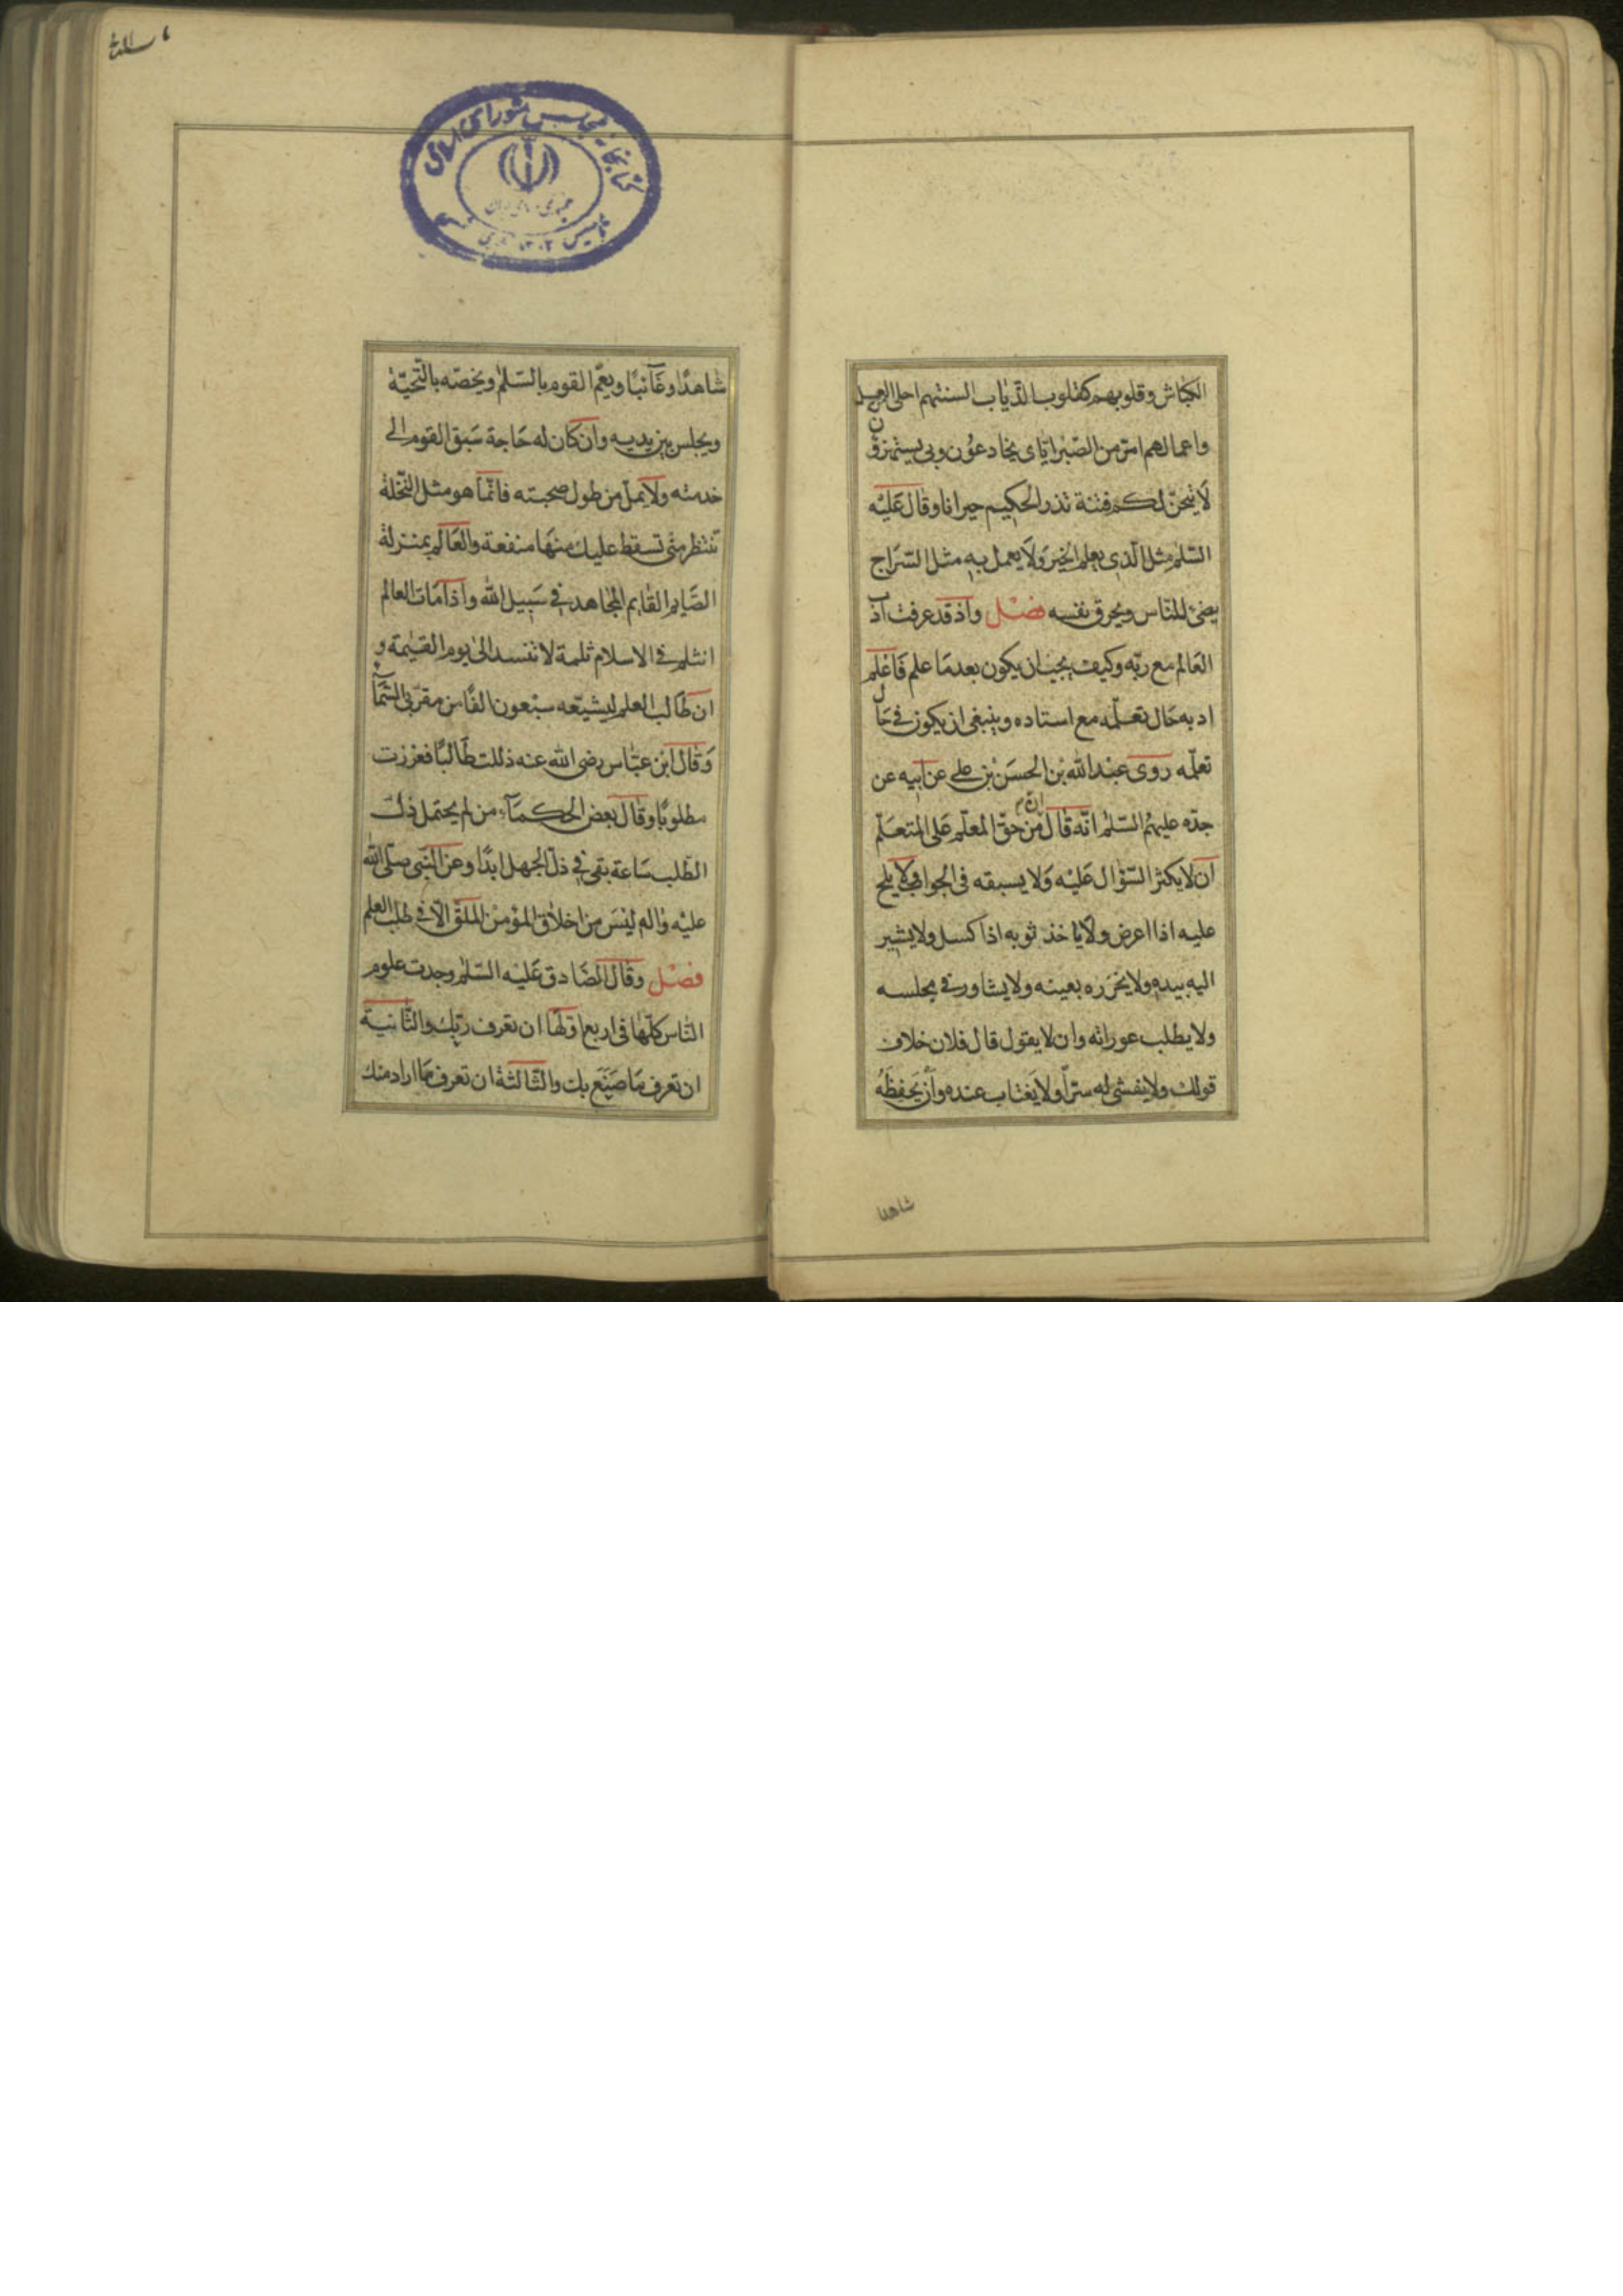 الكباش وقلوبهم كقلوب الذّياب السنتهم احلى من العسل
واعمالهم امرّ من الصّبر ايّاى يخادعُون وبى يستهزؤن
لَاُتيحنّ لكم فتنة تذر الحكيم حيرانا وقال عَليْه
السّلم مثل الّذى يعلم الخير وَلا يعمل به مثل السّراج
يضئ للنّاس ويحرق نفسه فصْل واذ قد عرفت اَدَب
العَالم مع ربّه وكيف يجب ان يكون بعد مَا علم فَاعْلم
ادبه حَال تعلّمه مع استاده وينبغى ان يكون فى حَال
تعلّمه روى عبْد الله بْن الحسَن بْن على عن ابيه عن
جدّه عليهمُ السّلم انّه قال انّ من حقّ المعلّم عَلى المتعَلّم
ان لا يكثر السّؤال عَليْه وَلا يسبقه فى الجواب ولا يلح
عليه اذا اعرض ولا ياخذ ثوبه اذا كسل ولا يشير
اليه بيده ولا يخزره بعينه ولا يشاور فى مجلسه
ولا يطلب عوراته وان لا يقول قال فلان خلاف
قولك ولا يفشى له سرّاً ولا يَغتاب عنده وَاَنْ يَحفِظَهُ
شاهدا
شاهدًا وغَآئبًا ويعمّ القوم بالسّلم ويخصّه بالتّحيّة
ويجلس بين يديه وان كان له حَاجة سَبق القوم الى
خدمته ولا يملّ من طول صحبته فانّمَا هو مثل النّخلة
تنتظر متى تسقط عليك منهَا منفعة والعَالم بمنزلة
الصَّايم القايم المجَاهد فى سَبيل الله واذا مَات العالم
انثلم فى الاسلام ثلمة لا تنسد الىٰ يوم القيٰمة و
ان طَالب العلم ليشيّعه سبْعون الفًا من مقرّبى السّمَآء
وَقال ابْن عبّاس رضى الله عنه ذللت طَالبًا فعززت
مطلوبًا وقال بعض الحكمَآء من لم يحتمل ذلّ
الطّلب سَاعة بقى فى ذلّ الجهل ابدًا وعن النّبى صلّى الله
عليْه واله ليْسَ من اخلاق المؤمنْ الملقُ الّا فى طلب العلم
فصْل وقال الصَّادق عَليْه السّلم وجدت علوم
النّاس كلّهَا فى اربع اوّلهَا ان تعرف ربّك والثّانية
ان تعرف مَا صَنَع بك والثّالثة ان تعرف مَا اراد منك